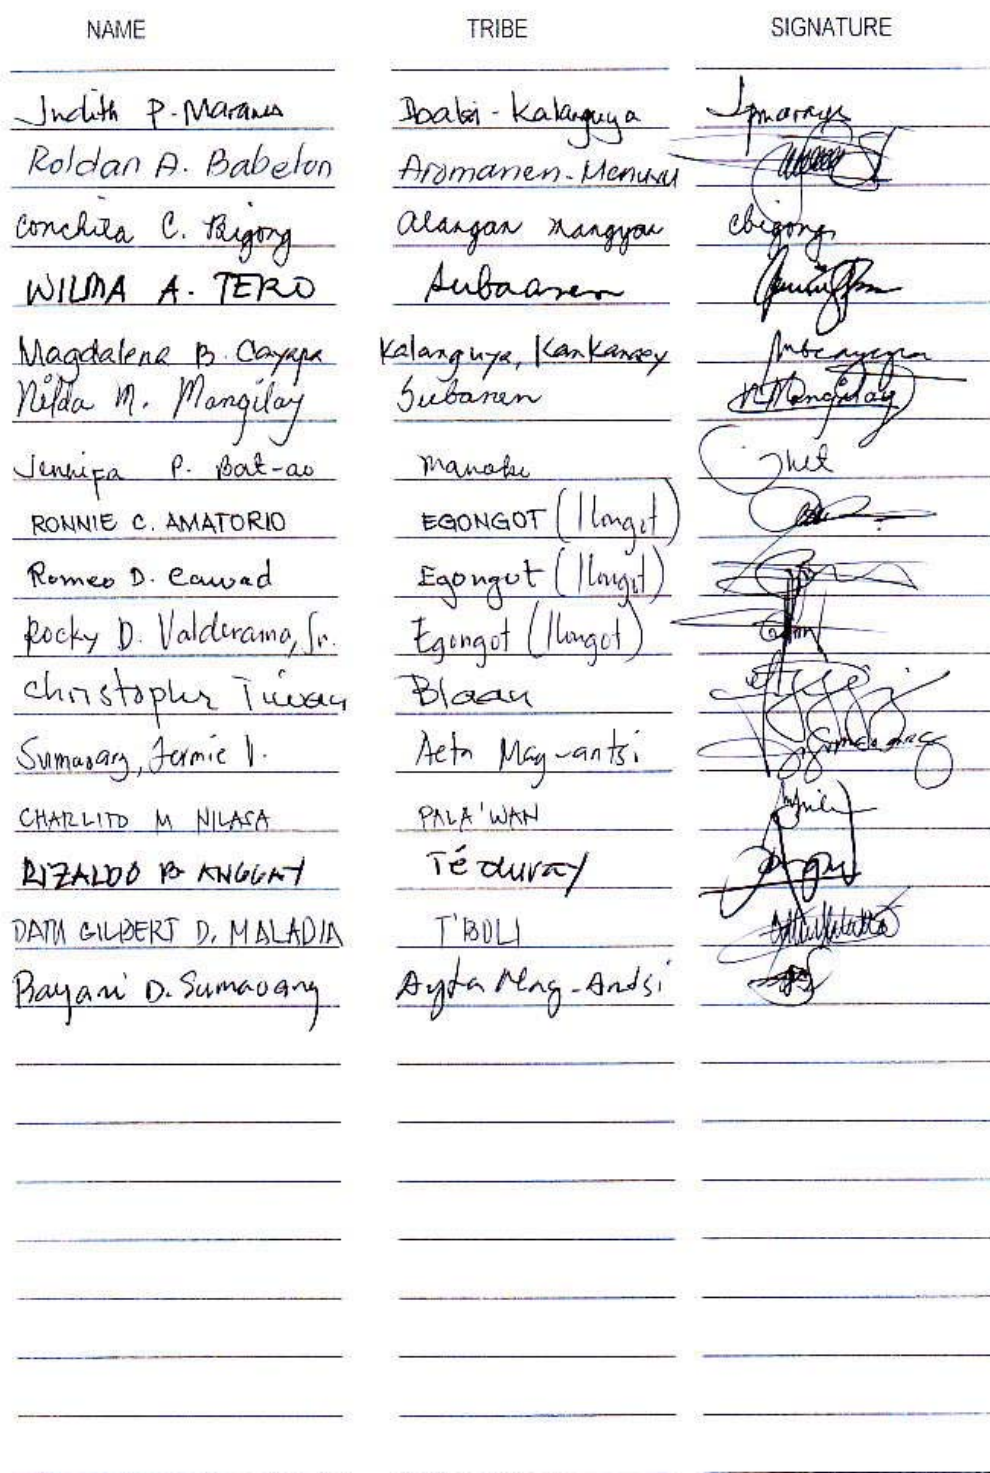 NAME TRIBE SIGNATURE
Judith P. Ibaloi - Kalanguya
Roldan A. Babelon Aromanen-Menuvu
Conchita C. Bigong alangan mangyan cbigong
WILMA A. TERO Subaanen
Magdalena B. Cayapa Kalanguya, Kankanaey mbcayapa
Nilda M. Mangilay Subanen NMangilay
P. Bat-ao manobo
RONNIE C. AMATORIO EGONGOT (Ilongot)
Romeo D. Cawad Egongot (Ilongot)
Rocky D. Valderama, Jr. Egongot (Ilongot)
Christopher Blaan
Sumaoang, Jermie V. Aeta Mag-antsi
CHARLITO M NILASA PALA'WAN
RIZALDO B ANGGAY Téduray
DATU GILBERT D. MALADIA T'BOLI
Bayani D. Sumaoang Ayta Mag-Antsi